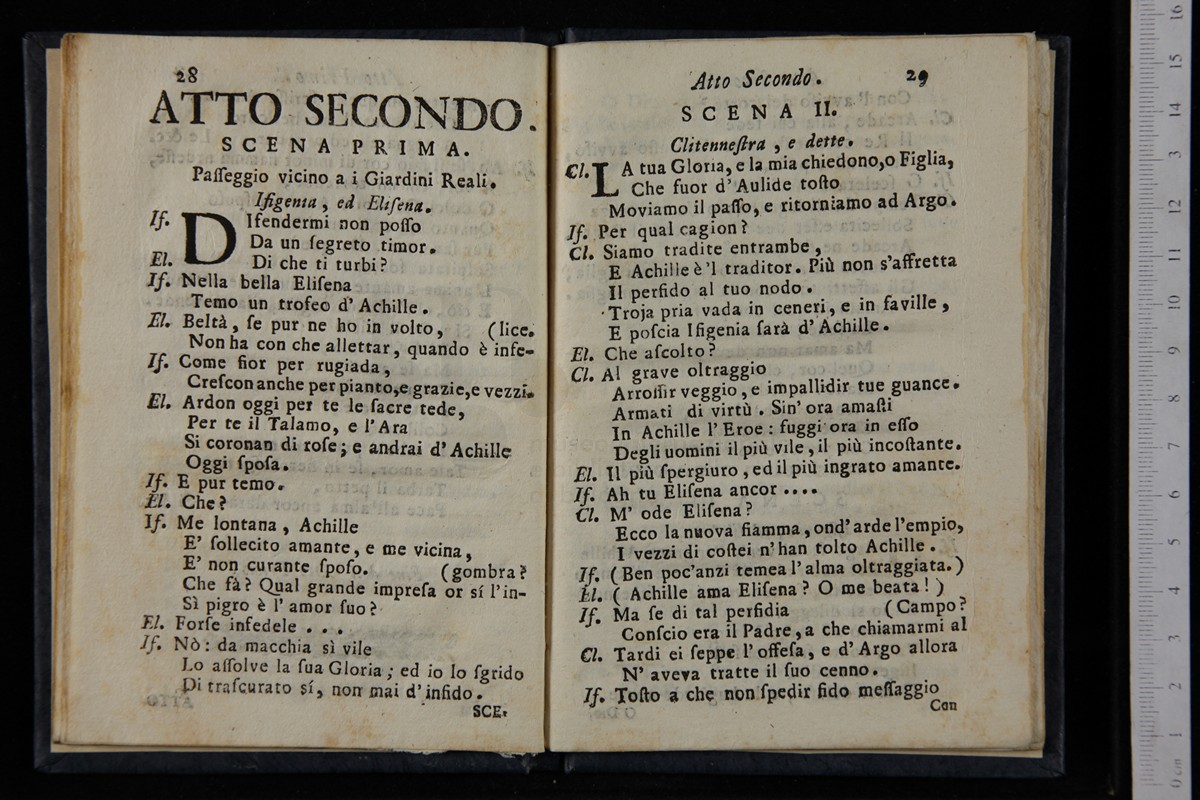 28
ATTO SECONDO.
SCENA PRIMA.
Paſſeggio vicino a i Giardini Reali.
Ifigenia, ed Eliſena.
If. DIfendermi non poſſo
Da un ſegreto timor.
El. Di che ti turbi?
If. Nella bella Eliſena
Temo un trofeo d' Achille.
El. Beltà, ſe pur ne ho in volto, (lice.
Non ha con che allettar, quando è infe-
If. Come fior per rugiada,
Creſcon anche per pianto,e grazie,e vezzi.
El. Ardon oggi per te le ſacre tede,
Per te il Talamo, e l'Ara
Si coronan di roſe; e andrai d'Achille
Oggi ſpoſa.
If. E pur temo.
El. Che?
If. Me lontana, Achille
E' ſollecito amante, e me vicina,
E' non curante ſpoſo. (gombra?
Che fà? Qual grande impreſa or sí l'in-
Sì pigro è l' amor ſuo?
El. Forſe infedele . . .
If. Nò: da macchia sì vile
Lo aſſolve la ſua Gloria; ed io lo ſgrido
Di traſcurato sí, non mai d'infido.
SCE.
Atto Secondo. 29
SCENA II.
Clitenneſtra, e dette.
Cl. LA tua Gloria, e la mia chiedono,o Figlia,
Che fuor d'Aulide toſto
Moviamo il paſſo, e ritorniamo ad Argo.
If. Per qual cagion?
Cl. Siamo tradite entrambe,
E Achille è 'l traditor. Più non s'affretta
Il perfido al tuo nodo.
Troja pria vada in ceneri, e in faville,
E poſcia Ifigenia ſarà d'Achille.
El. Che aſcolto?
Cl. Al grave oltraggio
Arroſſir veggio, e impallidir tue guance.
Armati di virtù. Sin' ora amaſti
In Achille l'Eroe: fuggi ora in eſſo
Degli uomini il più vile, il più incoſtante.
El. Il più ſpergiuro, ed il più ingrato amante.
If. Ah tu Eliſena ancor ....
Cl. M' ode Eliſena?
Ecco la nuova fiamma, ond' arde l'empio,
I vezzi di coſtei n' han tolto Achille.
If. (Ben poc'anzi temea l'alma oltraggiata.)
El. ( Achille ama Eliſena? O me beata! )
If. Ma ſe di tal perfidia (Campo?
Conſcio era il Padre, a che chiamarmi al
Cl. Tardi ei ſeppe l'offeſa, e d' Argo allora
N' aveva tratte il ſuo cenno.
If. Toſto a che non ſpedir fido meſſaggio
Con
16
15
14
13
12
11
10
9
8
7
6
5
4
3
2
1
0 cm